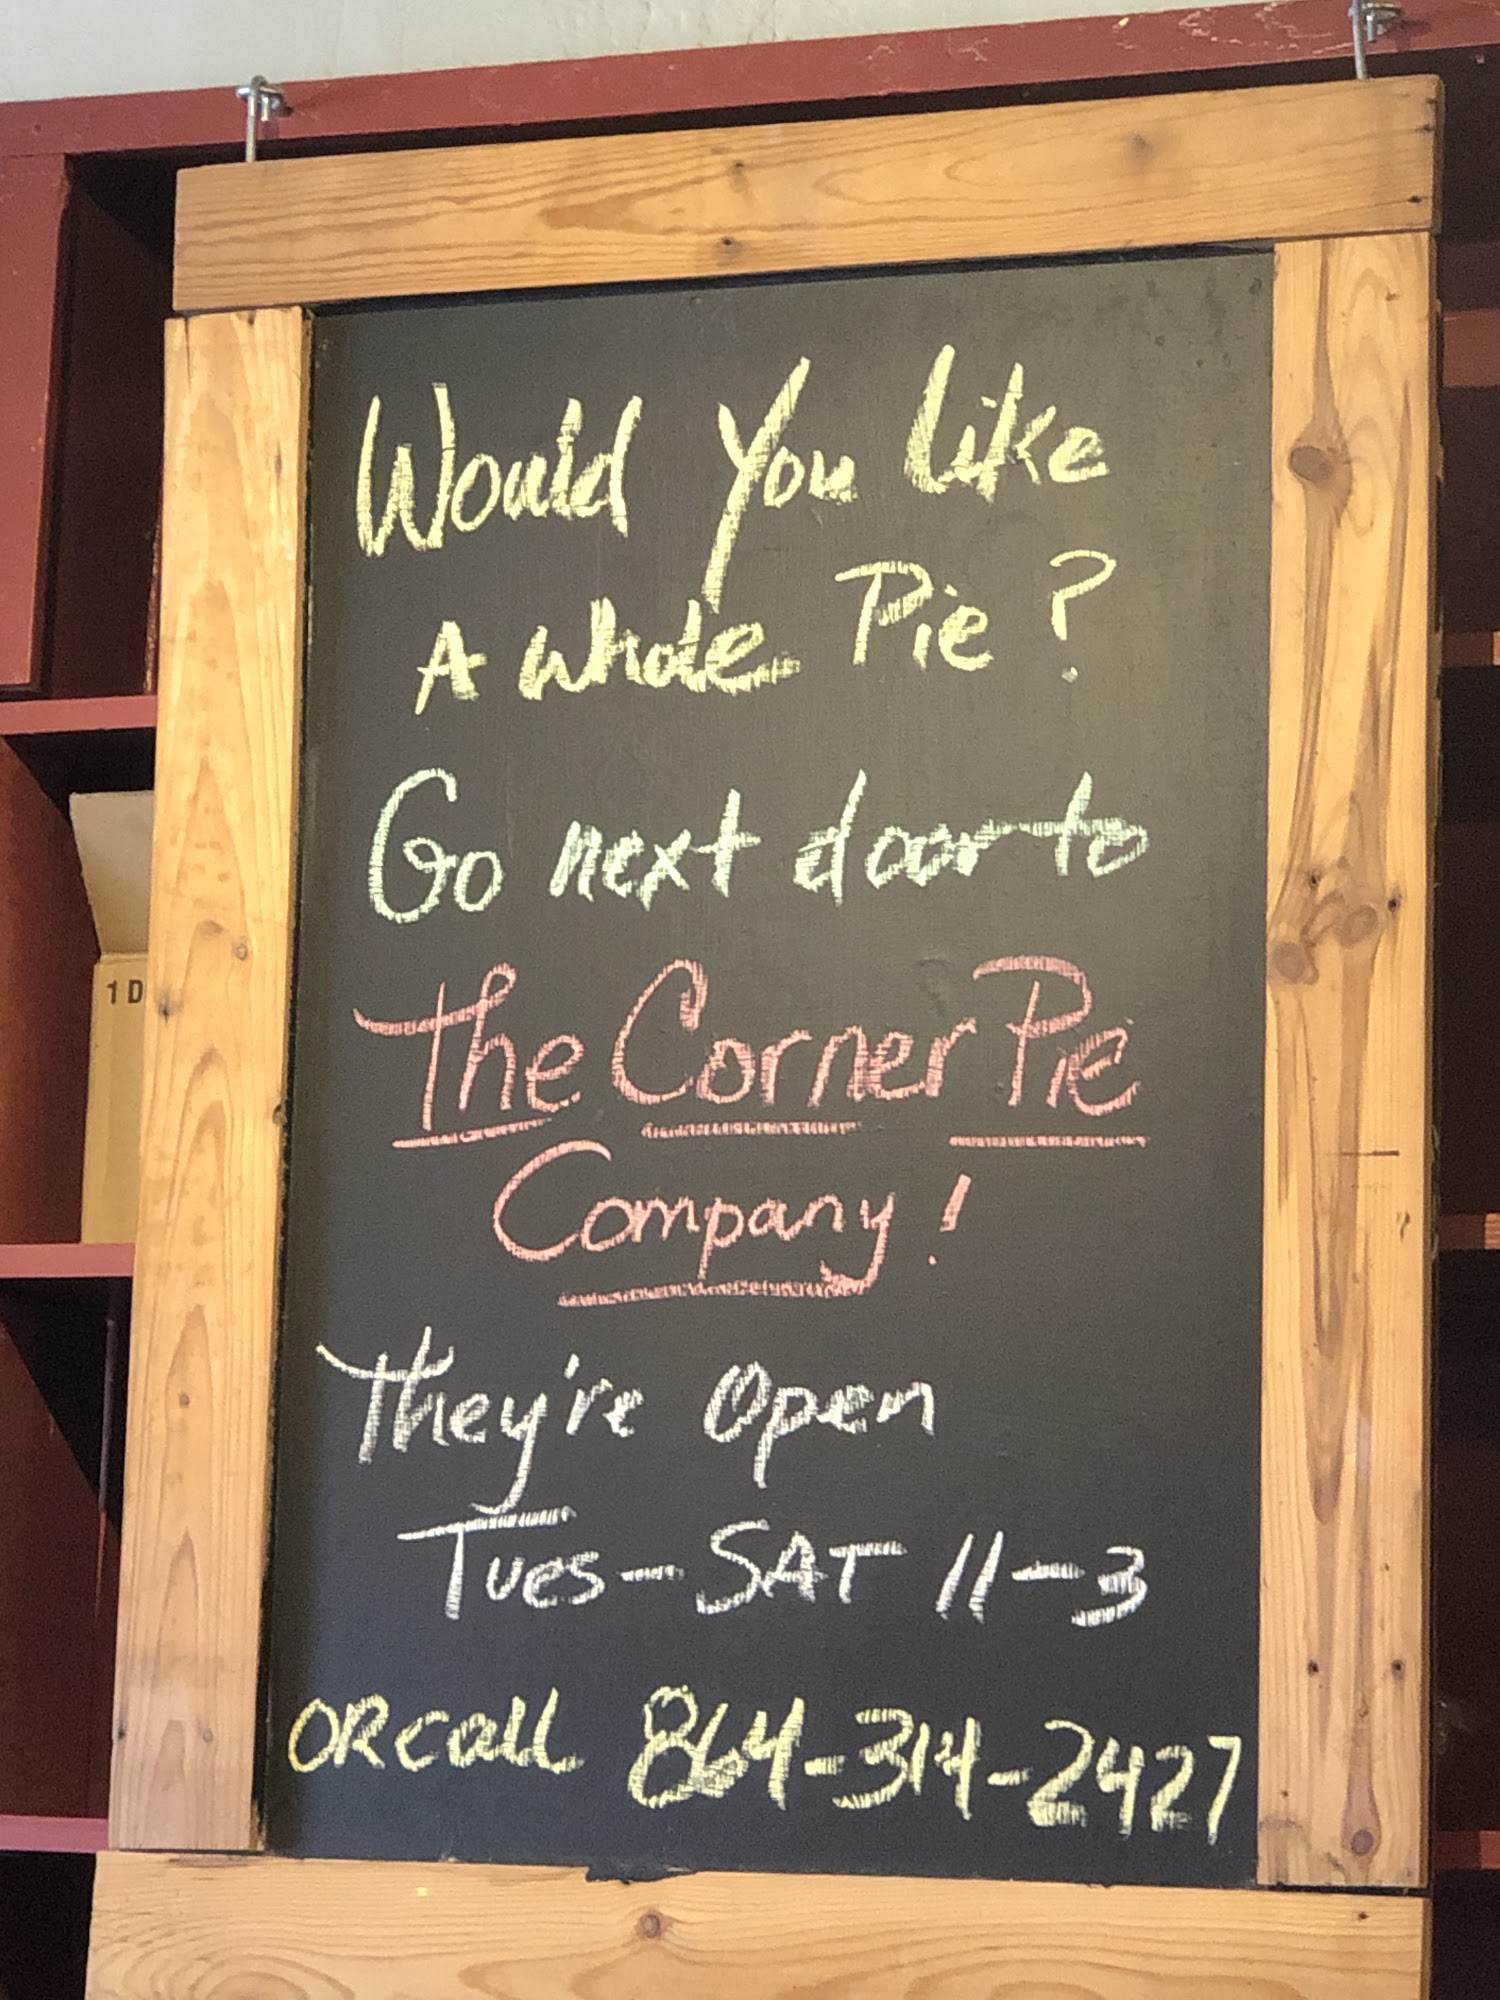 Would You like
A Whole Pie?
Go next door to
The Corner Pie
Company!
They're Open
Tues-SAT 11-3
OR call 864-314-2427
1 D